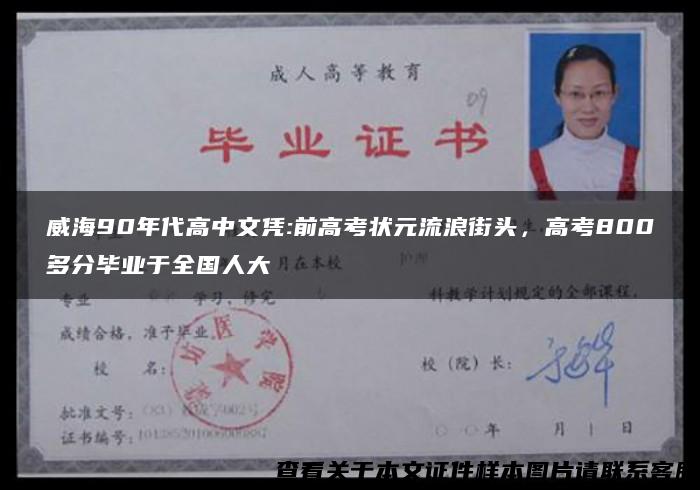 成人高等教育
09
毕业证书
威海90年代高中文凭:前高考状元流浪街头，高考800
多分毕业于全国人大
月在本校 护理
专业 学习，修完 科教学计划规定的全部课程，
成绩合格，准予毕业。
校 名： 校（院）长：
潍坊医学院
批准文号：(83) 002号
证书编号： 年 月 日
查看关于本文证件样本图片请联系客服